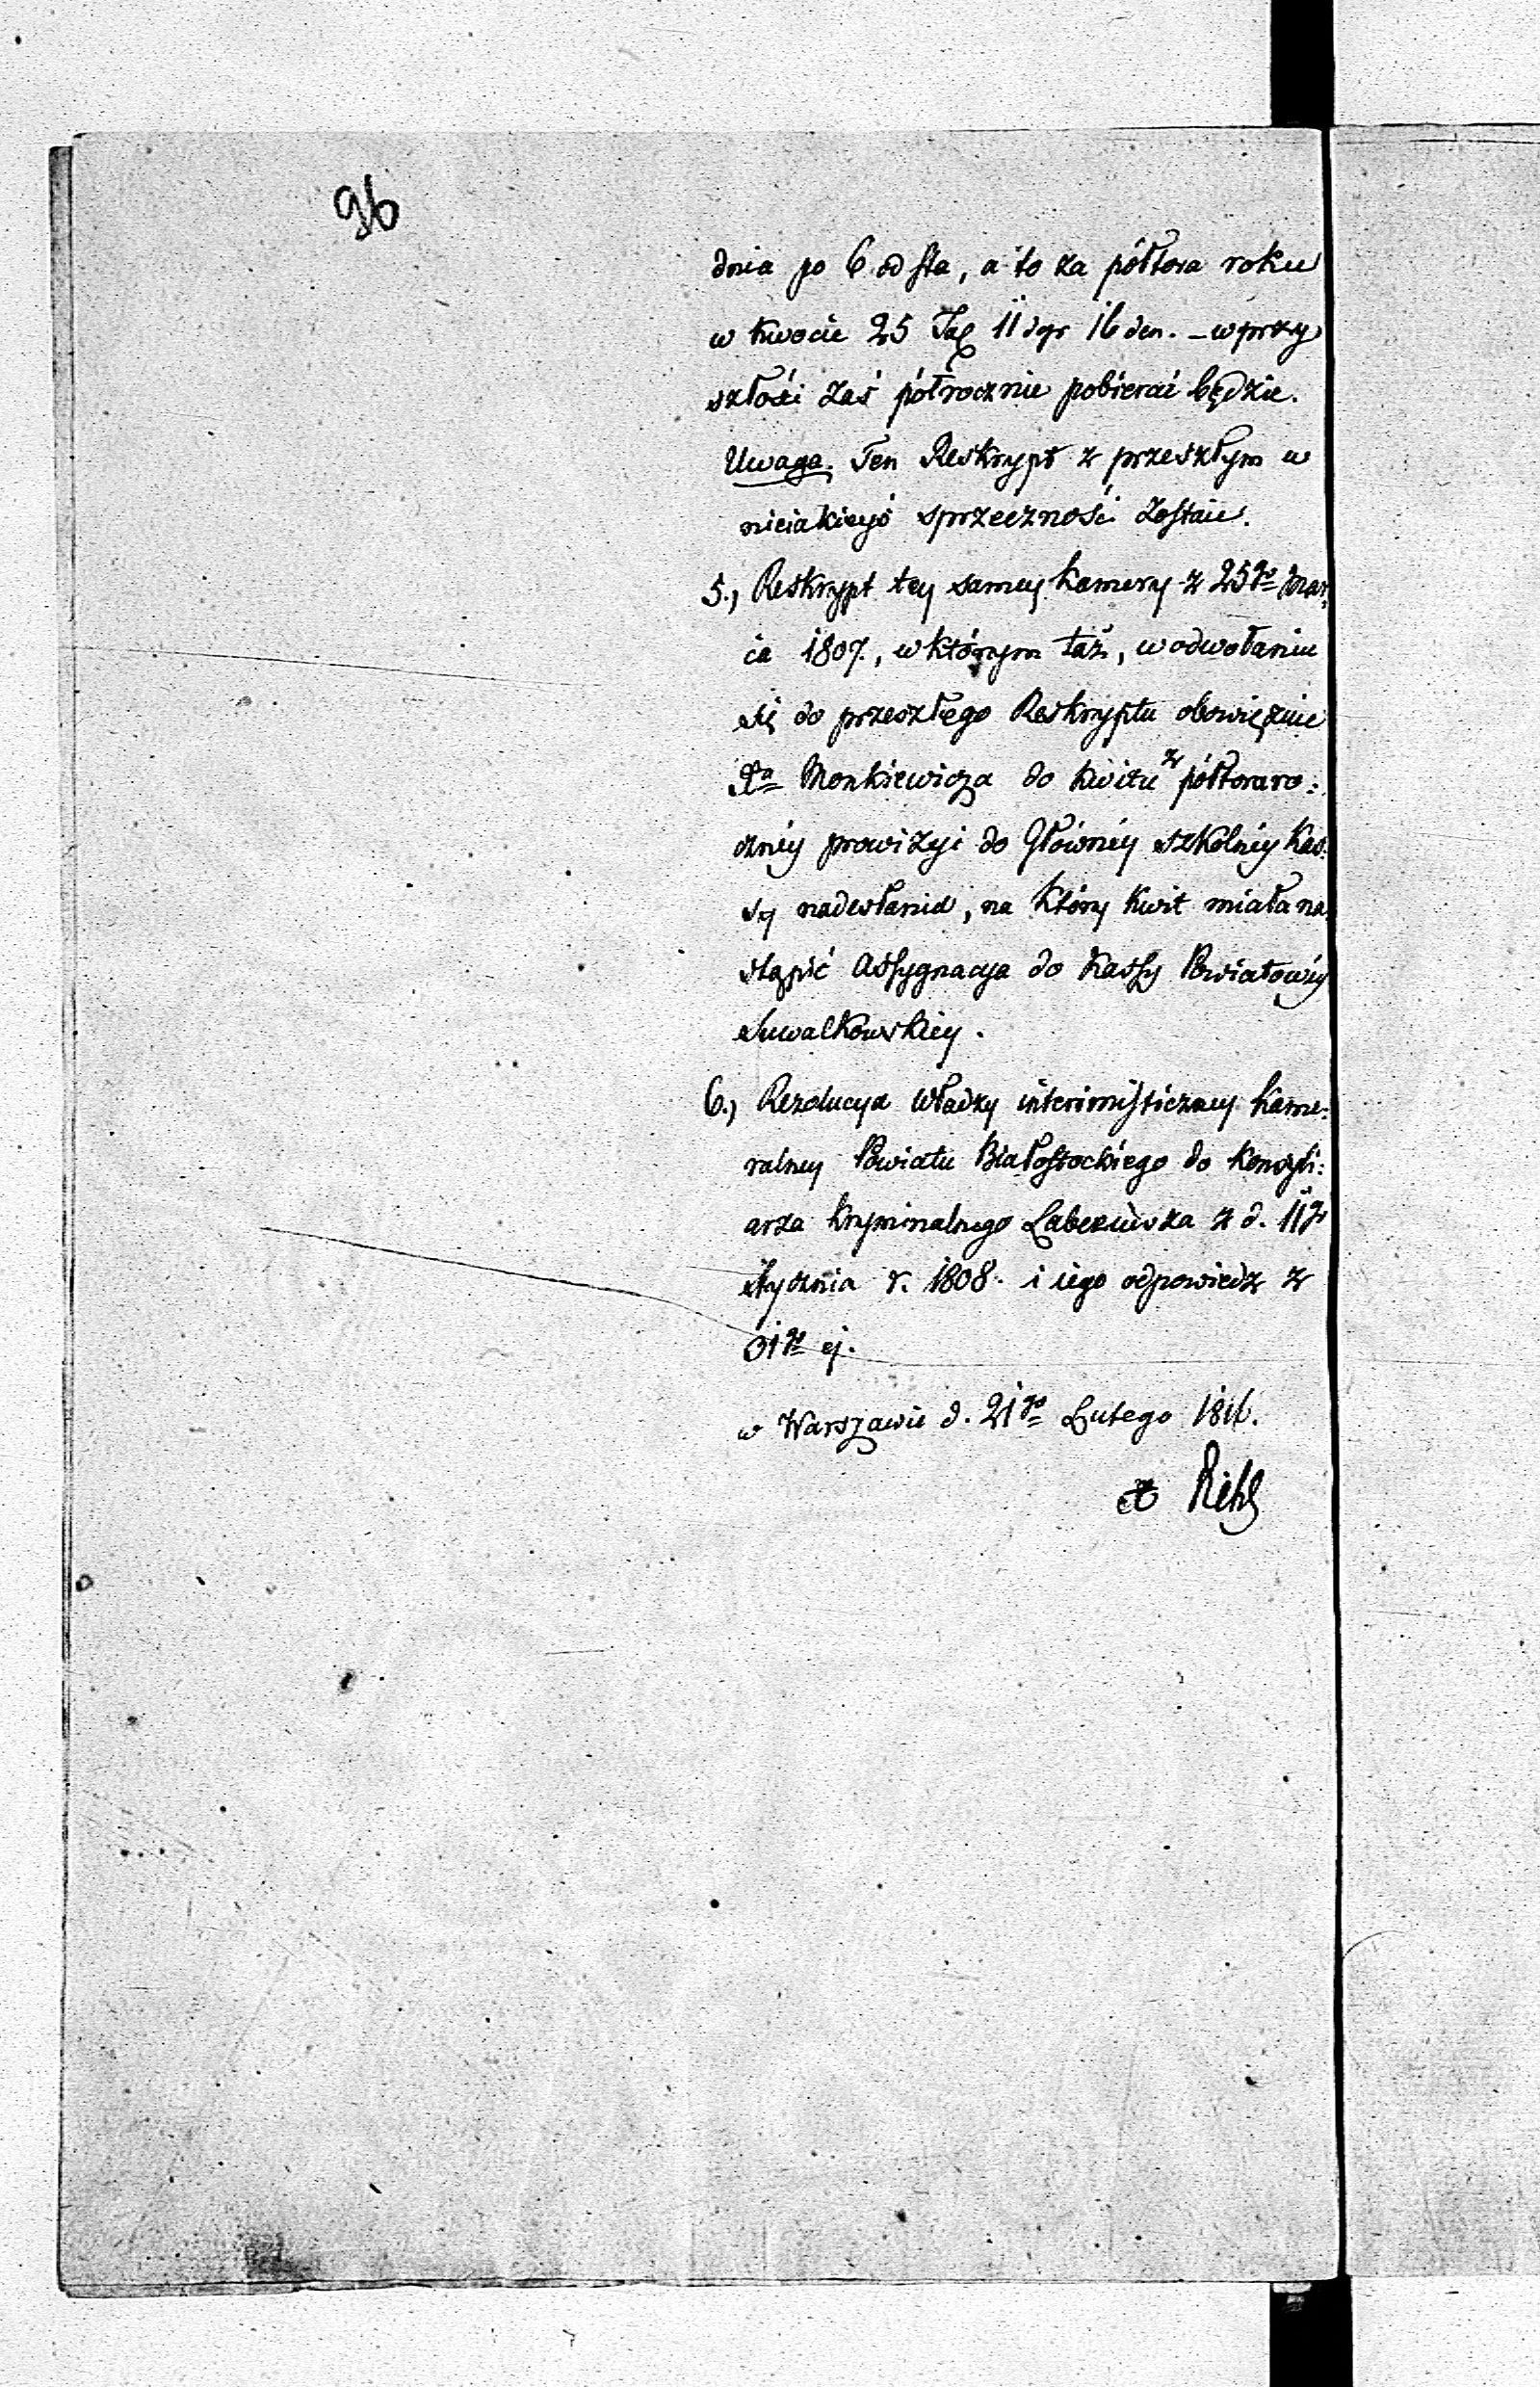 96
dnia po 6 od sta, a to za półtora roku
w kwocie 25 Tal 11 dgr 16 den. – w przy
szłości zaś półrocznie pobierać będzie.
Uwaga. Ten Reskrypt z przeszłym w
nieiakieyś sprzeczności zostaie.
5., Reskrypt tey samey Kamery z 25go Mar,
ca 1807., w którym taż, w odwołaniu
się do przeszłego Reskryptu obowięzuie
Pa Monkiewicza do kwitu z półtoraro:
cznéy prowizyi do Głównéy szkolnéy Kas:
sy nadesłania, na który kwit miała na
stąpić Assygnacya do Kassy Powiatowéy
Suwalkowskiey.
6., Rezolucya Władzy interimisticzney Kame:
ralney Powiatu Białostockiego do Konsyli:
arza kryminalnego z d. 11go
stycznia r. 1808. i iego odpowiedz z
31go ej.
w Warszawie d. 21go Lutego 1816.